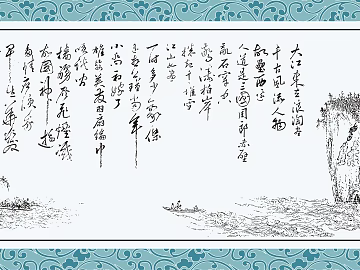 大江東去浪淘尽
千古風流人物
故壘西边
人道是三國周郎赤壁
乱石穿空
驚濤拍岸
捲起千堆雪
江山如画
一时多少豪傑
遥想公瑾当年
小喬初嫁了
雄姿英发羽扇綸巾
樯橹灰飛煙滅
故國神遊
多情應笑我
早生华髮